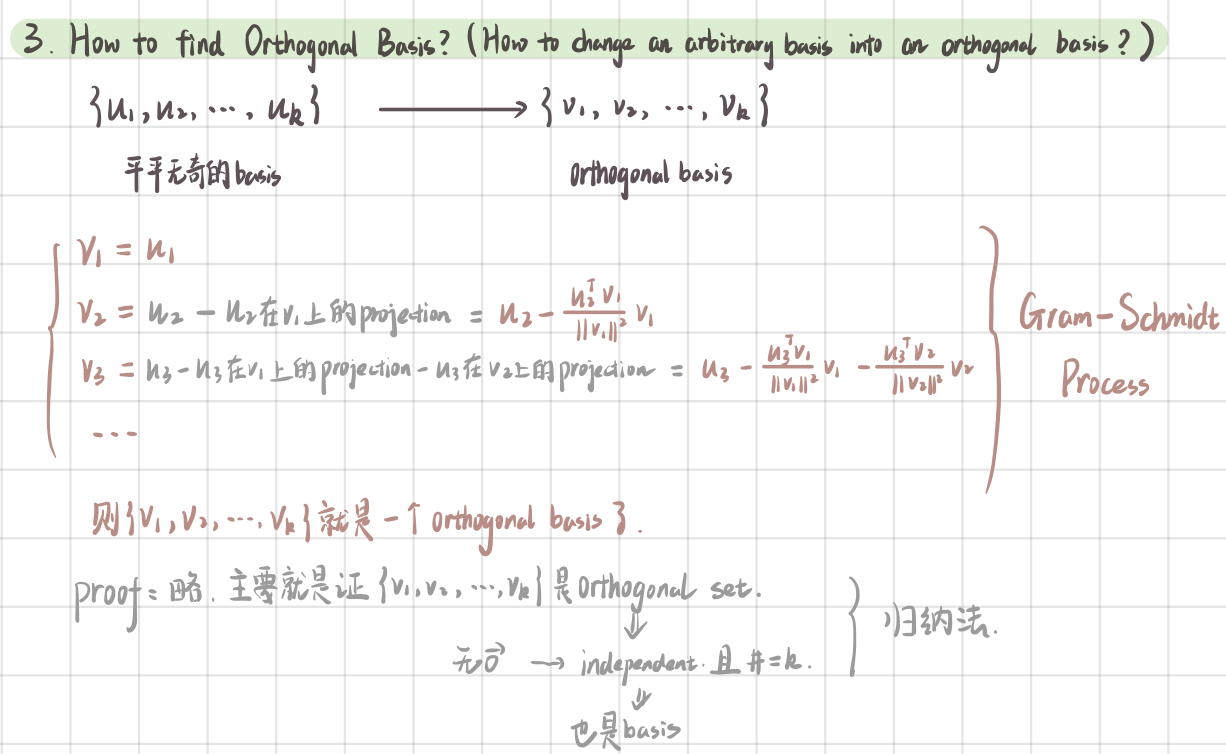 3. How to find Orthogonal Basis? (How to change an arbitrary basis into an orthogonal basis?)
{u₁, u₂, ⋯, uₖ} ⟶ {v₁, v₂, ⋯, vₖ}
平平无奇的basis orthogonal basis
v₁ = u₁
v₂ = u₂ − u₂在v₁上的projection = u₂ − (u₂ᵀv₁ / ||v₁||²) v₁
v₃ = u₃ − u₃在v₁上的projection − u₃在v₂上的projection = u₃ − (u₃ᵀv₁ / ||v₁||²) v₁ − (u₃ᵀv₂ / ||v₂||²) v₂
⋯
Gram-Schmidt
Process
则{v₁, v₂, ⋯, vₖ}就是一个orthogonal basis }.
proof: 略. 主要就是证{v₁, v₂, ⋯, vₖ}是orthogonal set.
⇓
无0⃗ → independent. 且#=k.
⇓
也是basis
归纳法.